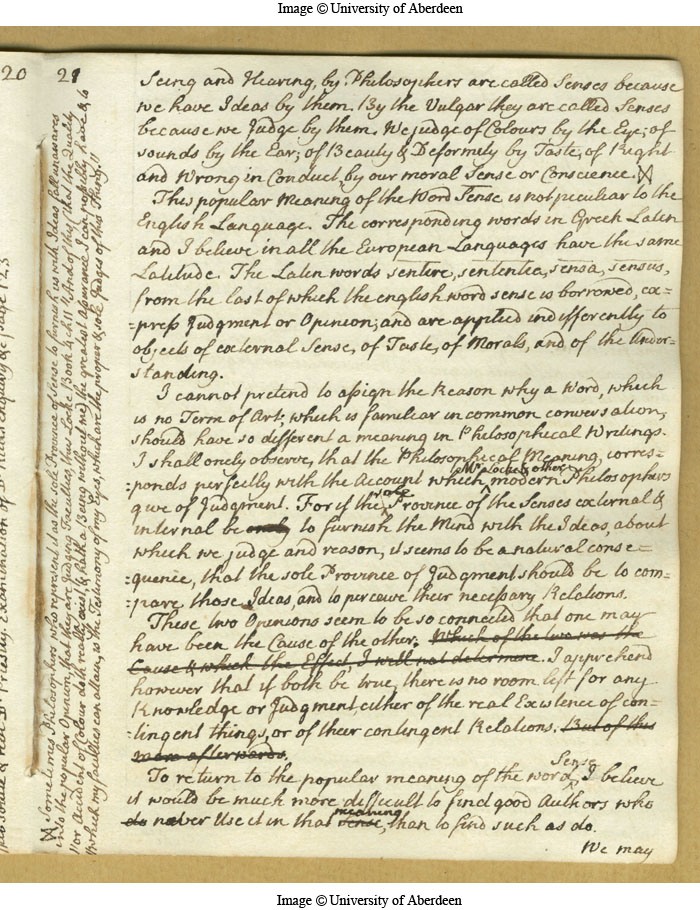 Image © University of Aberdeen
20
21
Seing and Hearing, by Philosophers are called Senses because
we have Ideas by them. By the Vulgar they are called Senses
because we Judge by them. We judge of Colours by the Eye; of
sounds by the Ear; of Beauty & Deformity by Taste; of Right
and Wrong in Conduct, by our moral Sense or Conscience.
This popular Meaning of the Word Sense is not peculiar to the
English Language. The corresponding words in Greek Latin
and I believe in all the European Languages have the same
Latitude. The Latin words sentire, sententia, sensa, sensus,
from the last of which the english word sense is borrowed, ex=
=press Judgment or Opinion, and are applied indifferently to
objects of external Sense, of Taste, of Morals, and of the Under=
standing.
I cannot pretend to assign the Reason why a Word, which
is no Term of Art, which is familiar in common conversation,
should have so different a meaning in Philosophical Writings.
I shall onely observe, that the Philosophical Meaning, corres=
=ponds perfectly with the Account which Mr Locke & other modern Philosophers
give of Judgment. For if the sole Province of the Senses external &
internal be only to furnish the Mind with the Ideas, about
which we judge and reason, it seems to be a natural conse=
=quence, that the sole Province of Judgment should be to com=
=pare those Ideas, and to perceive their necessary Relations.
These two Opinions seem to be so connected that one may
have been the Cause of the other. Which of the two was the
Cause & which the Effect I will not determine. I apprehend
however that if both be true, there is no room left for any
Knowledge or Judgment, either of the real Existence of con=
=tingent things, or of their contingent Relations. But of this
more afterwards.
To return to the popular meaning of the word Sense, I believe
it would be much more difficult to find good Authors who
do never Use it in that sense meaning, than to find such as do.
We may
Sometimes Philosophers who represent it as the sole Province of Sense to furnish us with Ideas fall unawares
into the popular Opinion, that they are Judging Faculties, thus Locke Book 4 ch 11 "And of this, (that the Quality
"or Accident of Colour doth really exist, & hath a Being without me) the greatest Assurance I can possibly have & to
"which my faculties can attain, is the Testimony of my Eyes, which are the proper & sole Judges of this thing."
Examination of Dr Reids Enquiry &c page 123
Image © University of Aberdeen